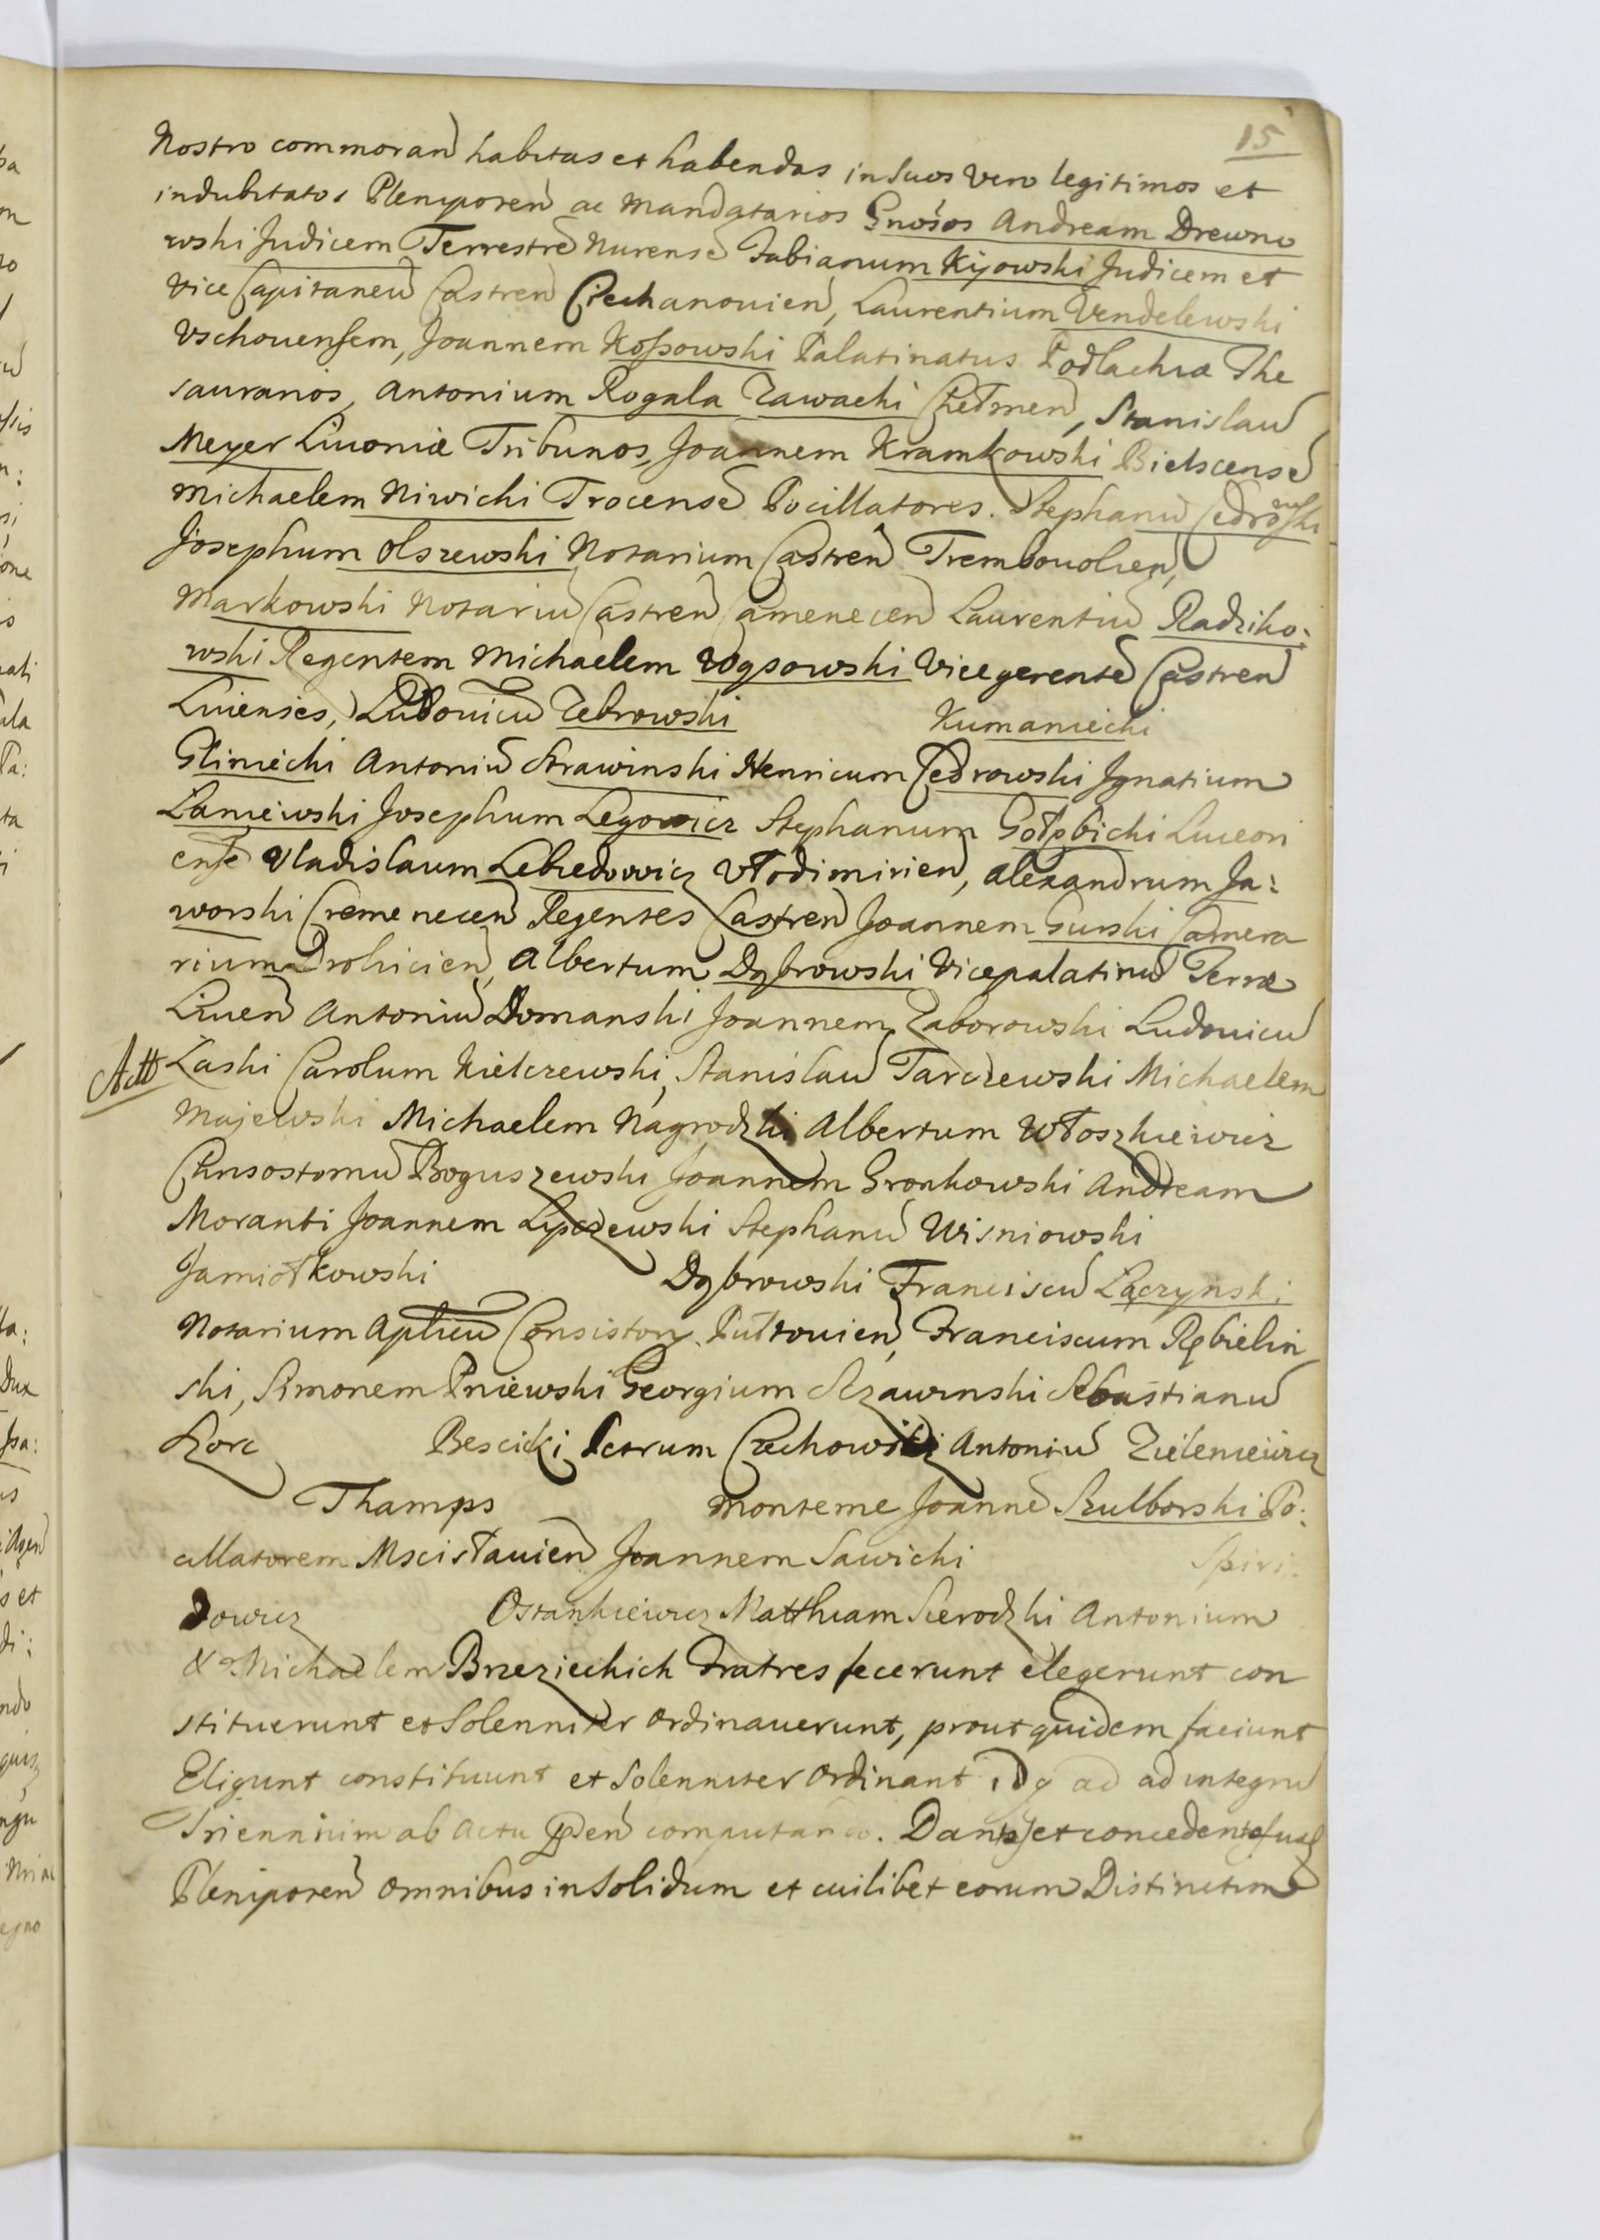 15
Nostro commoran habitas et habendas in Suos Vero legitimos et
indubitatos Plenipoten ac Mandatarios Gnosos Andream Drewno
wski Judicem Terrestre Nurense Fabianum Kijowski Judicem et
Vice Capitaneu Castren Ciechanouien, Laurentium Vendelewski
Vschouensem, Joannem Kossowski Palatinatus Podlachiæ The
sauranos, Antonium Rogala Zawacki Chelmen, Stanislau
Meyer Liuoniæ Tribunos, Joannem Kramkowski Bielscense
Michaelem Niwicki Trocense Pocillatores. Stephanu Cedrowski
Josephum Olszewski Notarium Castren Trembowolien,
Markowski Notariu Castren Camenecen Laurentiu Radziko:
wski Regentem Michaelem Wąsowski Vicegerente Castren
Liuenses, Ludouicu Zebrowski Kumaniecki
Gliniecki Antoniu Strawinski Henricum Cedrowski Ignatium
Laniewski Josephum Legowicz Stephanum Gołębicki Luceori
ense Vladislaum Lebiedowicz Włodimirien, Alexandrum Ja:
worski Cremenecen Regentes Castren Joannem Gurski Camera
rium Drohicien, Albertum Dąbrowski Vicepalatinu Terræ
Liuen Antoniu Domanski Joannem Zaborowski Ludouicu
Laski Carolum Kielczewski, Stanislau Tarczewski Michaelem
Majewski Michaelem Nagrodzki Albertum Włoszkiewicz
Chrisostomu Boguszewski Joannem Gronkowski Andream
Moranti Joannem Lipczewski Stephanu Wisniowski
Jamiołkowski Dąbrowski Franciscu Łączynski
Notarium Aplicu Consistory Pułtouien, Franciscum Rębielin
ski, Simonem Pniewski Georgium Szawinski Sebastianu
Szorc Bescicki Petrum Czechowski Antoniu Zieleniewicz
Thamps Monteme Joanne Szulborski Po:
cillatorem Mscisłauien Joannem Sawicki Spiri:
dowicz Ostankiewicz Matthiam Sierodzki Antonium
& Michaelem Brzezieckich Fratres fecerunt elegerunt con
stituerunt et Solenniter Ordinauerunt, prout quidem faciunt
Eligunt constituunt et Solenniter Ordinant idq ad ad integru
Triennium ab Actu pden computando. Dantes et concedentes suis
Plenipoten Omnibus in Solidum et cuilibet eorum Distinctim